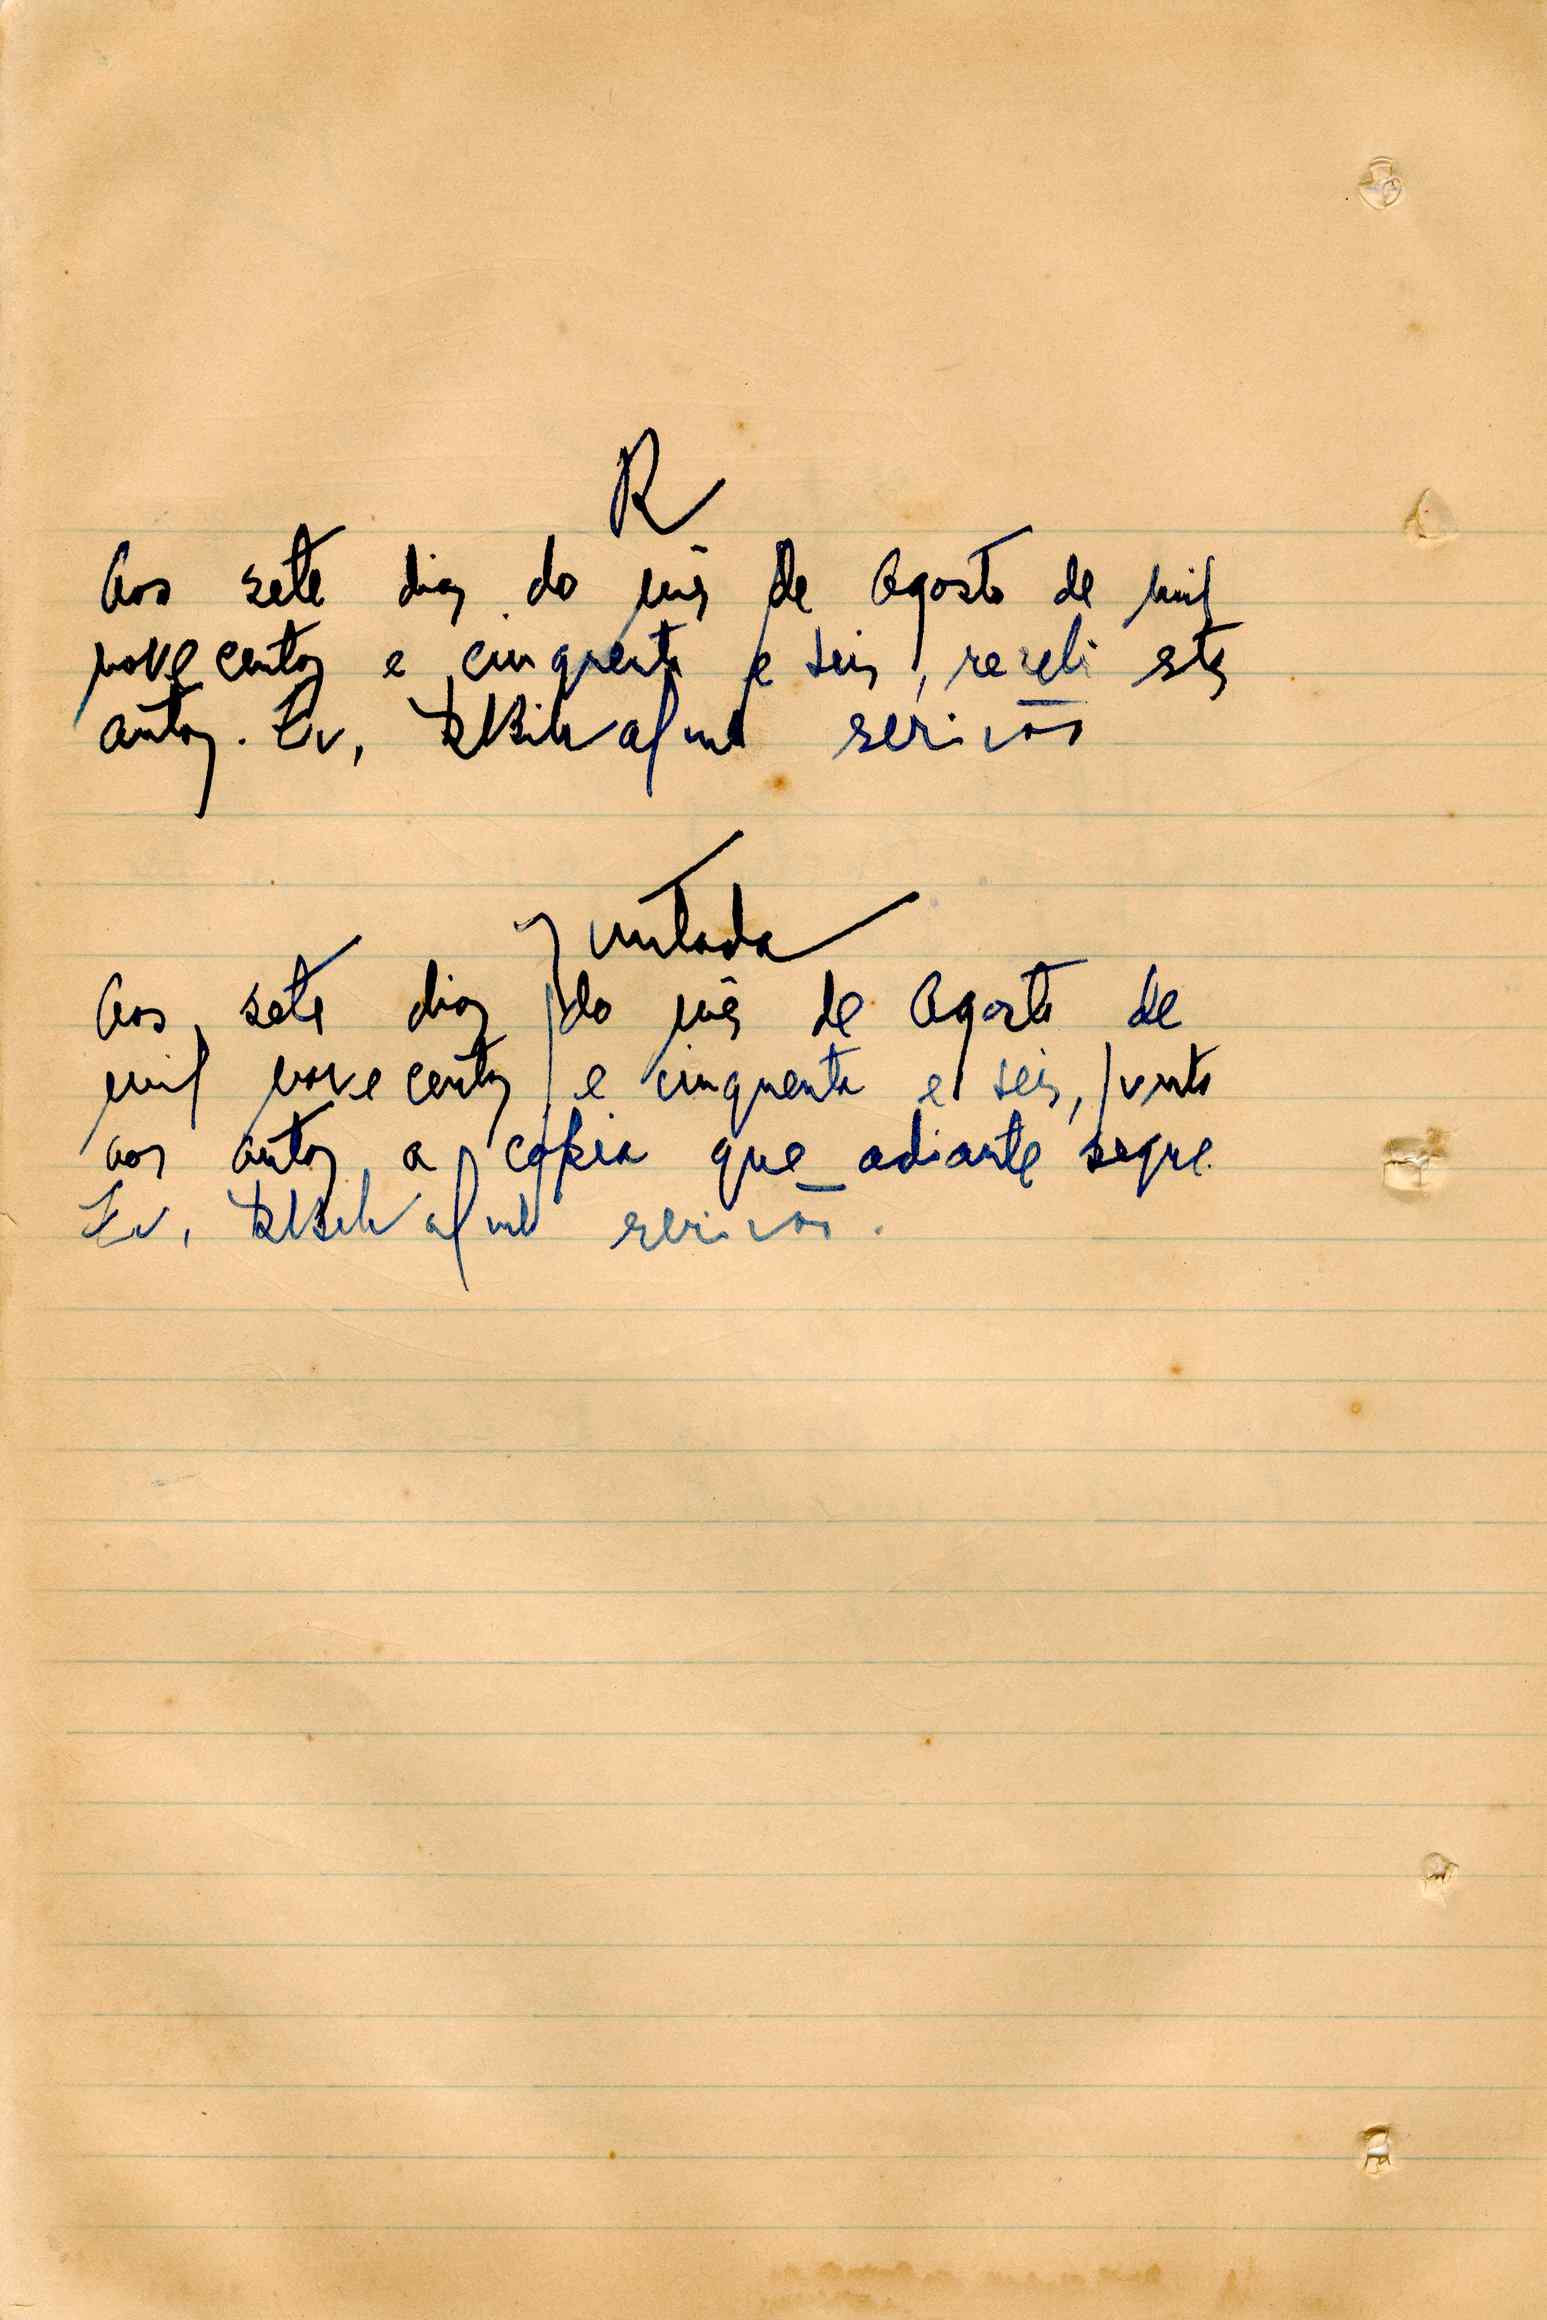 R
Aos sete dias do mês de Agosto de mil
novecentos e cinquenta e seis, recebi estes
autos. Eu, escrivão
Juntada
Aos sete dias do mês de Agosto de
mil novecentos e cinquenta e seis, junto
aos autos a cópia que adiante segue.
Eu, escrivão.